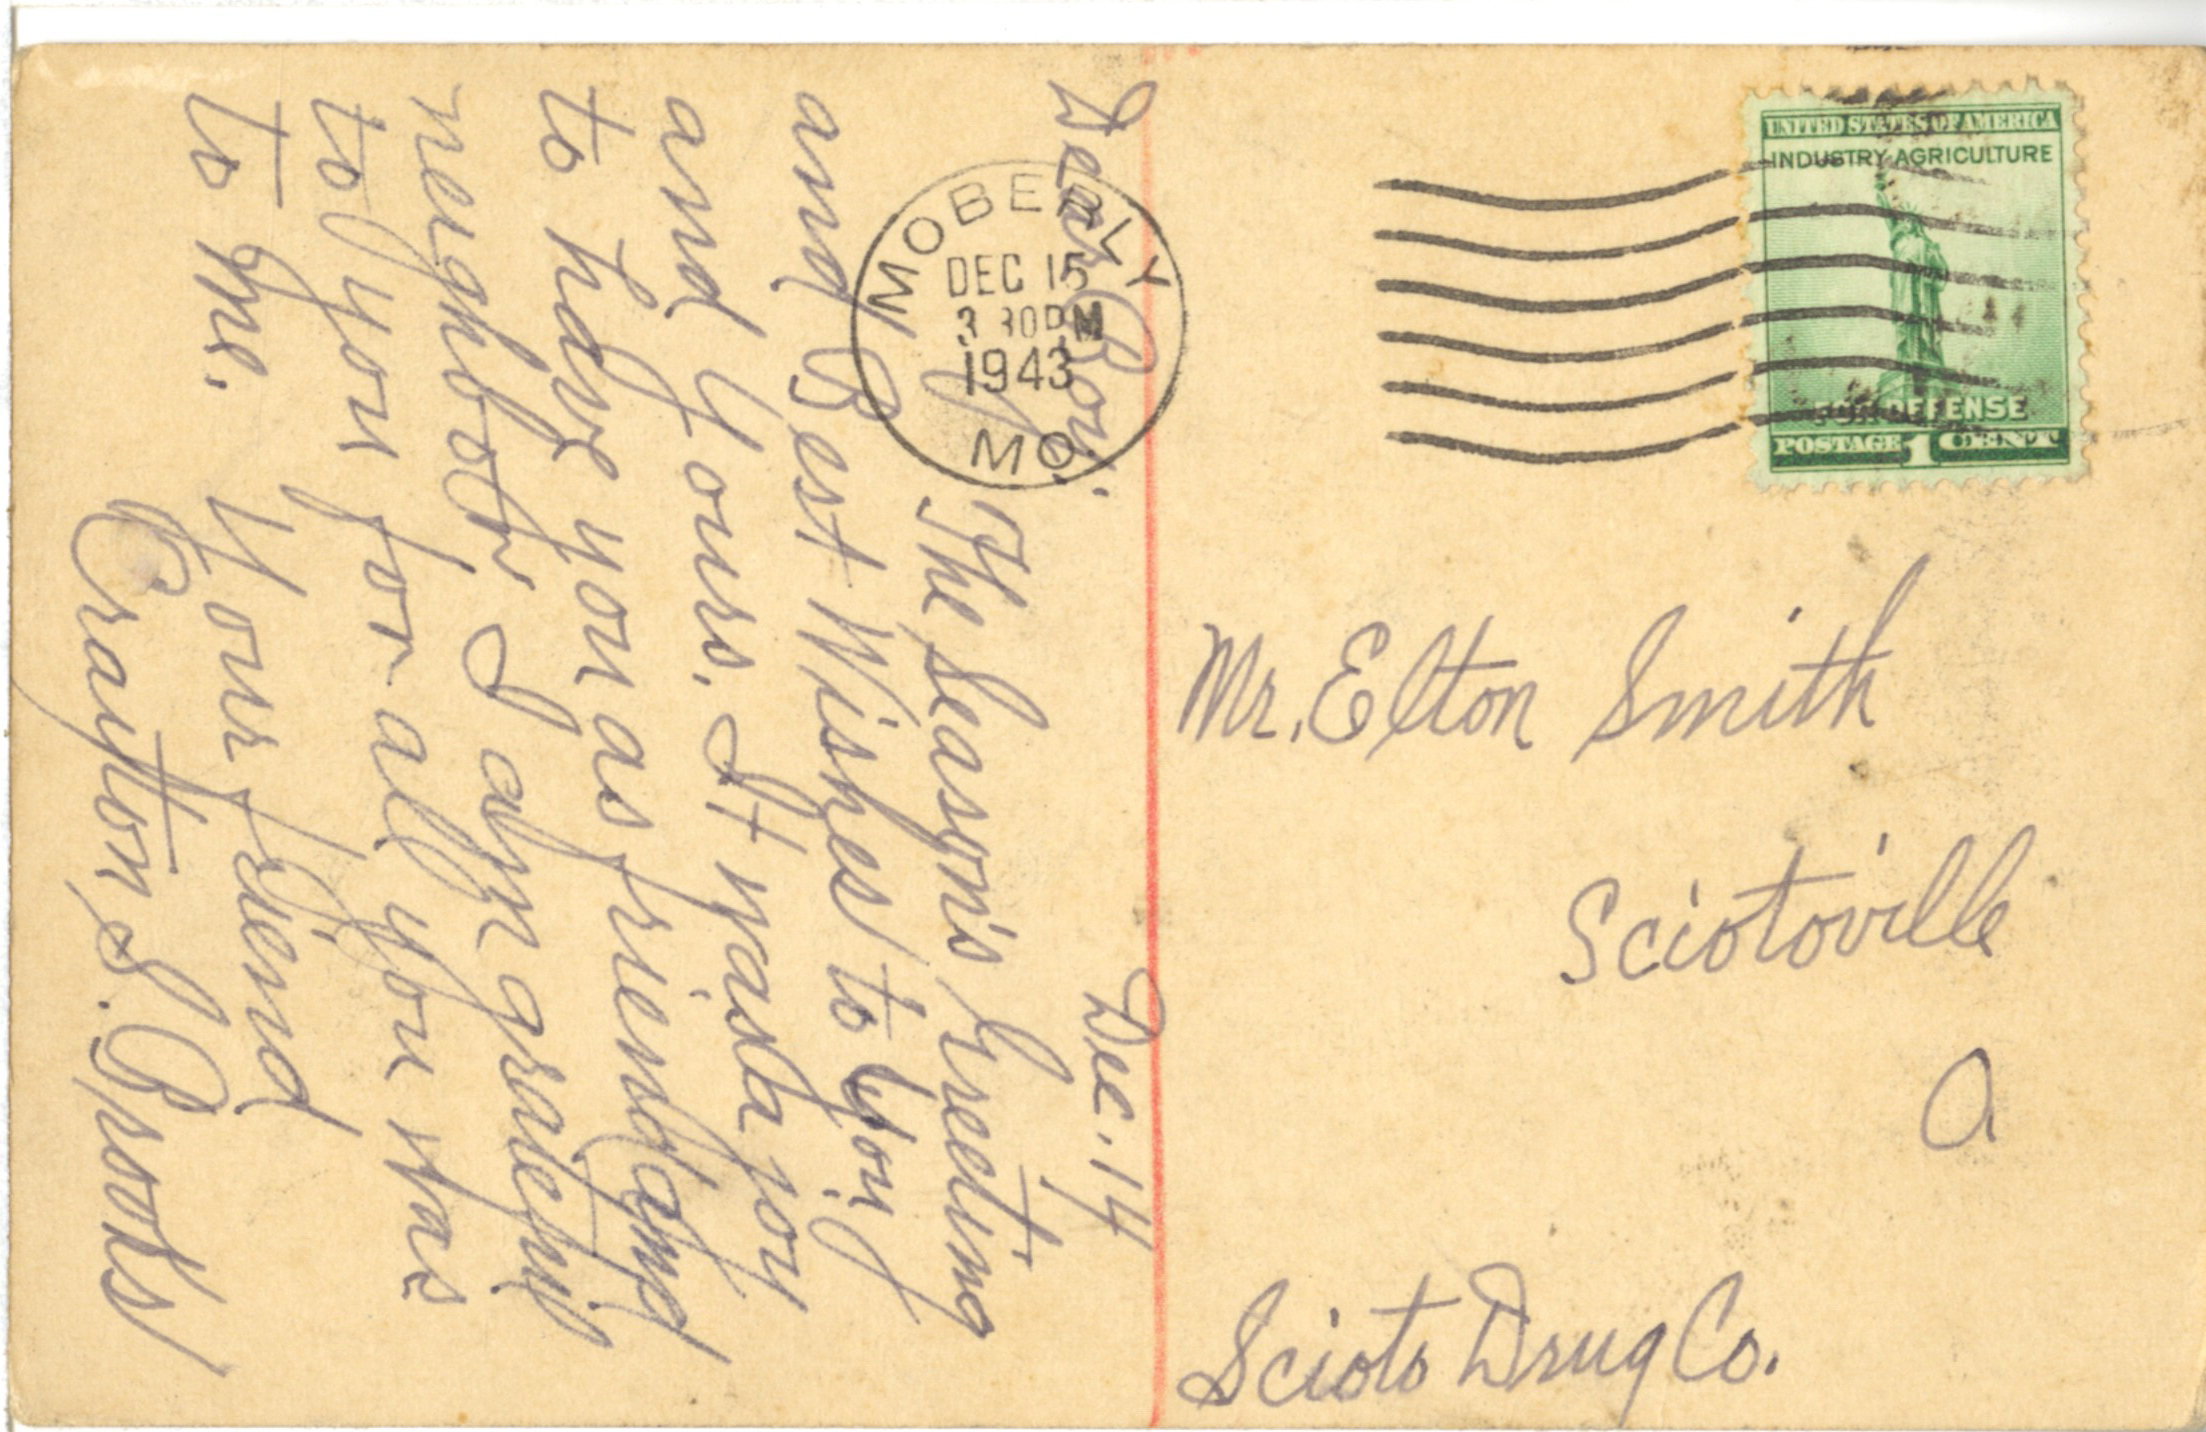 Dec. 14
Dear Boy:
The Season's Greeting
and Best Wishes to You
and Yours. It was a joy
to have you as friend and
neighbor I am grateful
to you for all you was
to me. Your friend
Crayton S. Brooks
MOBERLY
DEC 15
3 30PM
1943
MO.
UNITED STATES OF AMERICA
INDUSTRY AGRICULTURE
FOR DEFENSE
POSTAGE 1 CENT
Mr. Elton Smith
Sciotoville
O
Scioto Drug Co.